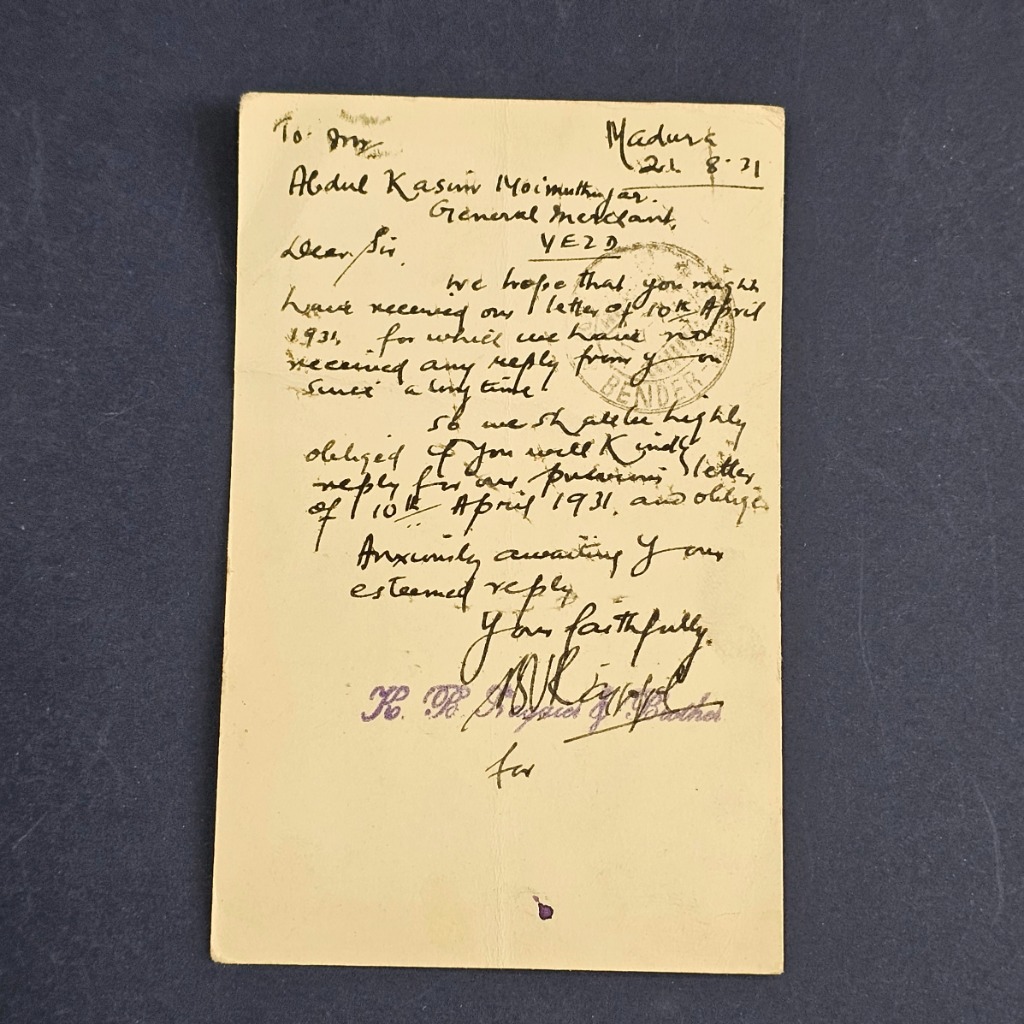 To Mr
Madura
21. 8. 31
Abdul Kasim
General Merchant,
YEZD
Dear Sir,
We hope that you might
have received our letter of 10th April
1931, for which we have no
received any reply from you
since a long time
So we shall be highly
obliged if you will Kindly
reply for our previous letter
of 10th April 1931, and oblige
Anxiously awaiting your
esteemed reply
Yours faithfully,
K. B. & Brother
for
BENDER